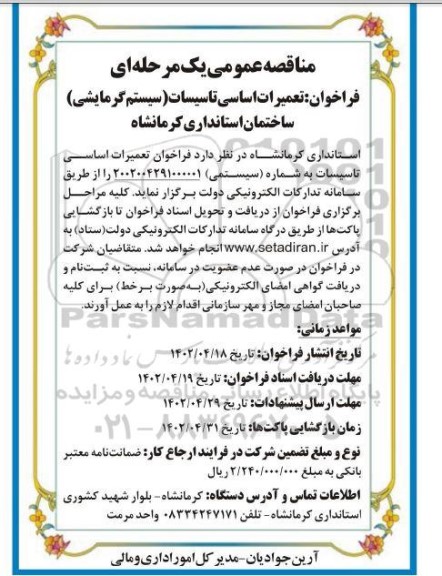 مناقصه عمومی یک مرحله‌ای
فراخوان: تعمیرات اساسی تاسیسات (سیستم گرمایشی)
ساختمان استانداری کرمانشاه
استانداری کرمانشاه در نظر دارد فراخوان تعمیرات اساسی
تاسیسات به شماره (سیستمی) ۲۰۰۲۰۰۴۲۹۱۰۰۰۰۰۱ را از طریق
سامانه تدارکات الکترونیکی دولت برگزار نماید. کلیه مراحل
برگزاری فراخوان از دریافت و تحویل اسناد فراخوان تا بازگشایی
پاکت‌ها از طریق درگاه سامانه تدارکات الکترونیکی دولت (ستاد) به
آدرس www.setadiran.ir انجام خواهد شد. متقاضیان شرکت
در فراخوان در صورت عدم عضویت در سامانه، نسبت به ثبت‌نام و
دریافت گواهی امضای الکترونیکی (به‌صورت برخط) برای کلیه
صاحبان امضای مجاز و مهر سازمانی اقدام لازم را به عمل آورند.
مواعد زمانی:
تاریخ انتشار فراخوان: تاریخ ۱۴۰۲/۰۴/۱۸
مهلت دریافت اسناد فراخوان: تاریخ ۱۴۰۲/۰۴/۱۹
مهلت ارسال پیشنهادات: تاریخ ۱۴۰۲/۰۴/۲۹
زمان بازگشایی پاکت‌ها: تاریخ ۱۴۰۲/۰۴/۳۱
نوع و مبلغ تضمین شرکت در فرایند ارجاع کار: ضمانت‌نامه معتبر
بانکی به مبلغ ۲/۲۴۰/۰۰۰/۰۰۰ ریال
اطلاعات تماس و آدرس دستگاه: کرمانشاه - بلوار شهید کشوری
استانداری کرمانشاه - تلفن ۰۸۳۳۴۲۴۷۱۷۱ واحد مرمت
آرین جوادیان - مدیر کل امور اداری و مالی
ParsNamadData